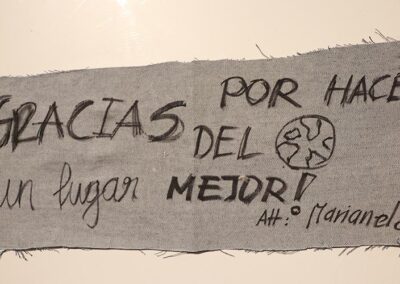 GRACIAS POR HACE
DEL
un lugar MEJOR!
Att: Marianela